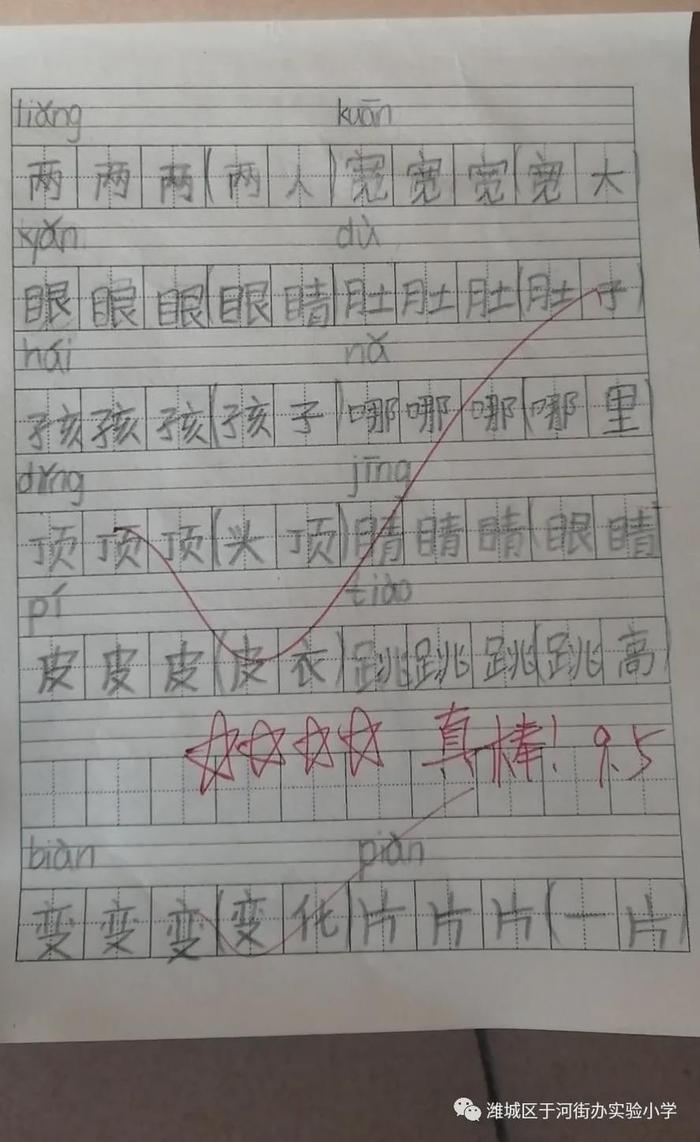 liǎng kuān
两两两(两人)宽宽宽(宽大)
yǎn dù
眼眼眼(眼睛)肚肚肚(肚子)
hái nǎ
孩孩孩(孩子)哪哪哪(哪里)
dǐng jīng
顶顶顶(头顶)睛睛睛(眼睛)
pí tiào
皮皮皮(皮衣)跳跳跳(跳高)
☆☆☆☆ 真棒! 9.5
biàn piàn
变变变(变化)片片片(一片)
潍城区于河街办实验小学